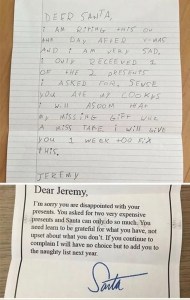 DEAR SANTA,
I AM RITING THIS ON
THE DAY AFTER X-MAS
AND I AM VERY SAD.
I ONLY RECEIVED 1
OF THE 2 PRESENTS
I ASKED FOR. SENSE
YOU ATE MY COOKYS
I WILL ASOOM THAT
MY MISSING GIFT WAS
A MISS TAKE. I WILL GIVE
YOU 1 WEEK TO FIX
THIS.
JEREMY
Dear Jeremy,
I'm sorry you are disappointed with your
presents. You asked for two very expensive
presents and Santa can only do so much. You
need learn to be grateful for what you have, not
upset about what you don't. If you continue to
complain I will have no choice but to add you to
the naughty list next year.
Santa